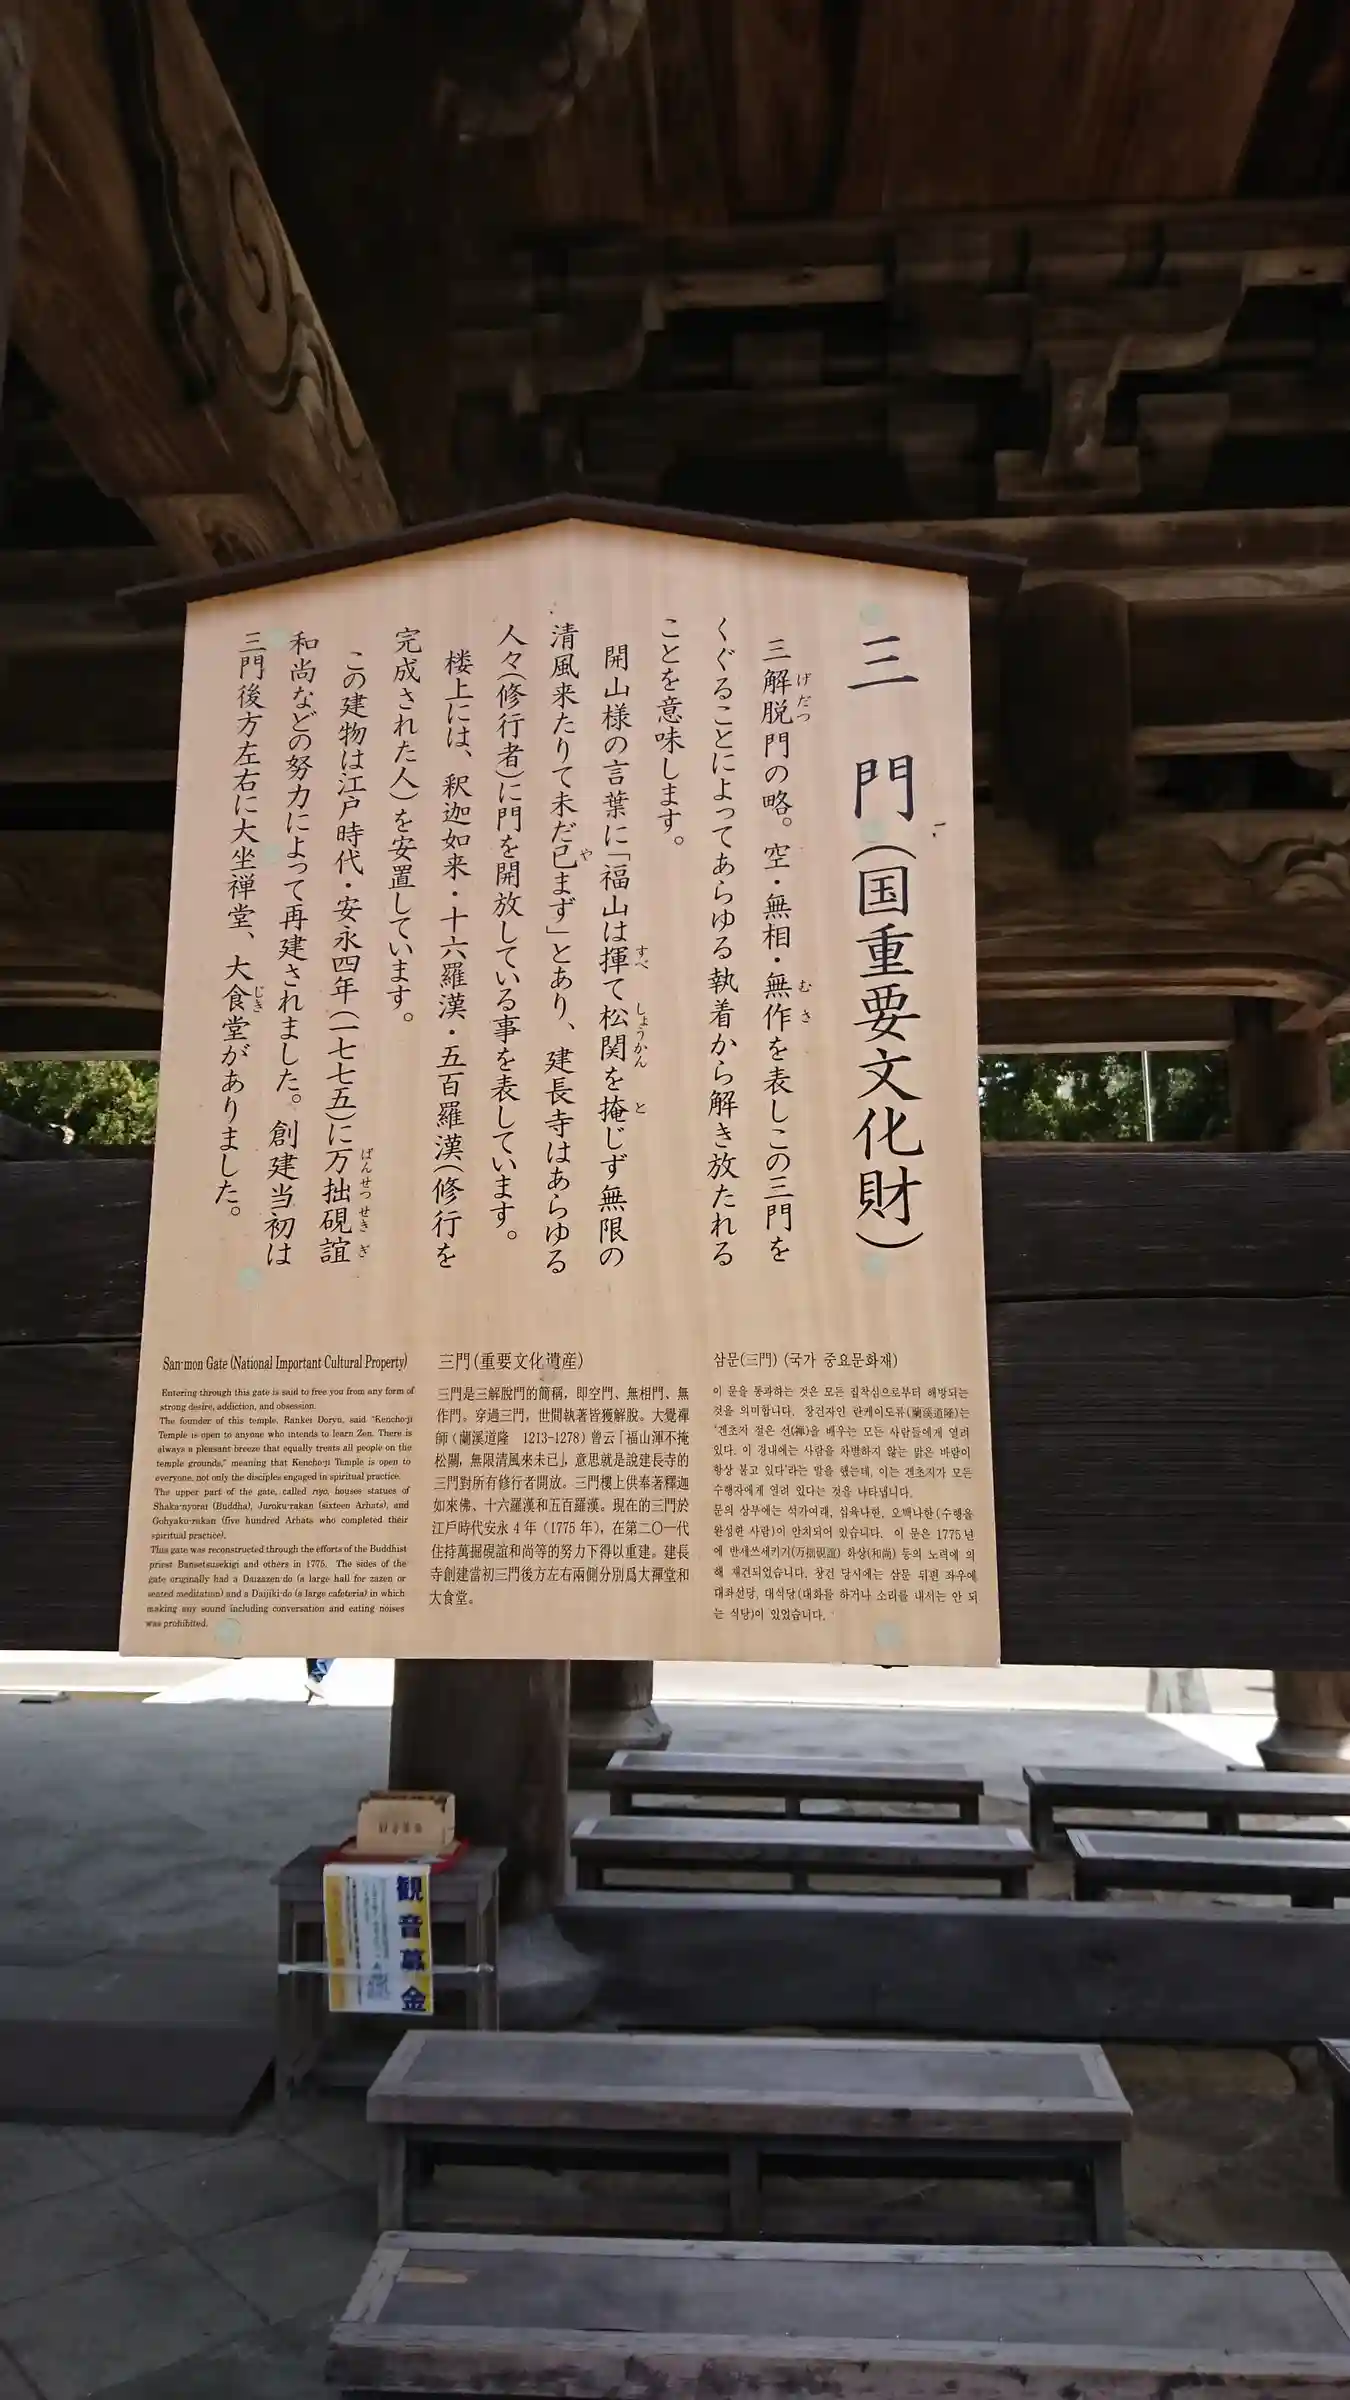 三門(国重要文化財)
三解脱門の略。空・無相・無作を表しこの三門を
げだつ
むさ
くぐることによってあらゆる執着から解き放たれる
ことを意味します。
開山様の言葉に「福山は揮て松関を掩じず無限の
すべ
しょうかん
と
清風来たりて未だ已まず」とあり、建長寺はあらゆる
や
人々(修行者)に門を開放している事を表しています。
楼上には、釈迦如来・十六羅漢・五百羅漢(修行を
完成された人)を安置しています。
この建物は江戸時代・安永四年(一七七五)に万拙硯誼
ばんせつ せき ぎ
和尚などの努力によって再建されました。創建当初は
三門後方左右に大坐禅堂、大食堂がありました。
じき
San-mon Gate (National Important Cultural Property)
Entering through this gate is said to free you from any form of
strong desire, addiction, and obsession.
The founder of this temple, Rankei Doryu, said "Kencho-ji
Temple is open to anyone who intends to learn Zen. There is
always a pleasant breeze that equally treats all people on the
temple grounds," meaning that Kencho-ji Temple is open to
everyone, not only the disciples engaged in spiritual practice.
The upper part of the gate, called ryo, houses statues of
Shaka-nyorai (Buddha), Juroku-rakan (sixteen Arhats), and
Gohyaku-rakan (five hundred Arhats who completed their
spiritual practice).
This gate was reconstructed through the efforts of the Buddhist
priest Bansetsusekigi and others in 1775. The sides of the
gate originally had a Daizazen-do (a large hall for zazen or
seated meditation) and a Daijiki-do (a large cafeteria) in which
making any sound including conversation and eating noises
was prohibited.
三門(重要文化遺産)
三門是三解脫門的簡稱，即空門、無相門、無
作門。穿過三門，世間執著皆獲解脫。大覺禪
師（蘭溪道隆 1213-1278）曾云「福山渾不掩
松關，無限清風來未已」，意思就是說建長寺的
三門對所有修行者開放。三門樓上供奉著釋迦
如來佛、十六羅漢和五百羅漢。現在的三門於
江戶時代安永 4 年（1775 年），在第二〇一代
住持萬拙硯誼和尚等的努力下得以重建。建長
寺創建當初三門後方左右兩側分別爲大禪堂和
大食堂。
삼문(三門) (국가 중요문화재)
이 문을 통과하는 것은 모든 집착심으로부터 해방되는
것을 의미합니다. 창건자인 란케이도류(蘭溪道隆)는
'겐초지 절은 선(禪)을 배우는 모든 사람들에게 열려
있다. 이 경내에는 사람을 차별하지 않는 맑은 바람이
항상 불고 있다'라는 말을 했는데, 이는 겐초지가 모든
수행자에게 열려 있다는 것을 나타냅니다.
문의 상부에는 석가여래, 십육나한, 오백나한(수행을
완성한 사람)이 안치되어 있습니다. 이 문은 1775년
에 반세쓰세키기(万拙硯誼) 화상(和尚) 등의 노력에 의
해 재건되었습니다. 창건 당시에는 삼문 뒤편 좌우에
대좌선당, 대식당(대화를 하거나 소리를 내서는 안 되
는 식당)이 있었습니다.
観音募金